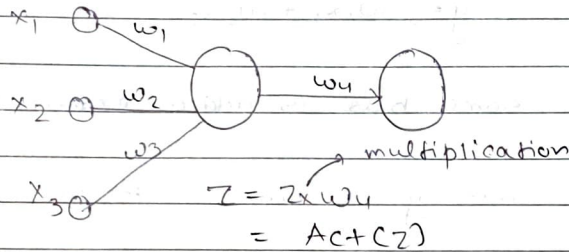 x₁ w₁
x₂ w₂ w₄
w₃ multiplication
x₃ z = z x w₄
= Act(z)